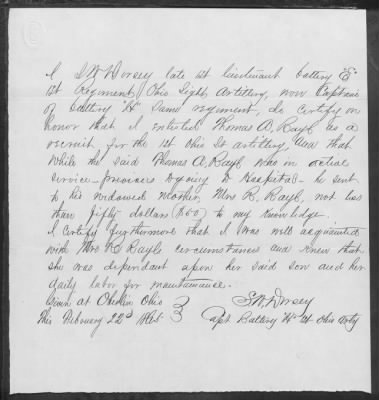 I S W Dorsey late 1st lieutenant battery "E"
1st Regiment Ohio Light Artillery, now Captain
of battery "H" Same regiment, do certify on
honor that I enlisted Thomas A. Rayl as a
recruit for the 1st Ohio Lt artillery, And that
while the said Thomas A. Rayl was in active
service - previous to going to Hospital - he sent
to his widowed Mother, Mrs R. Rayl, not less
than fifty dollars ($50) to my Knowledge.
I Certify furthermore that I was well acquainted
with Mrs R Rayls circumstances and Knew that
she was dependant upon her said son and her
daily labor for maintainance.
Given at Oberlin Ohio
This February 22d
S. W. Dorsey
Capt. Battery "H" 1st Ohio Arty